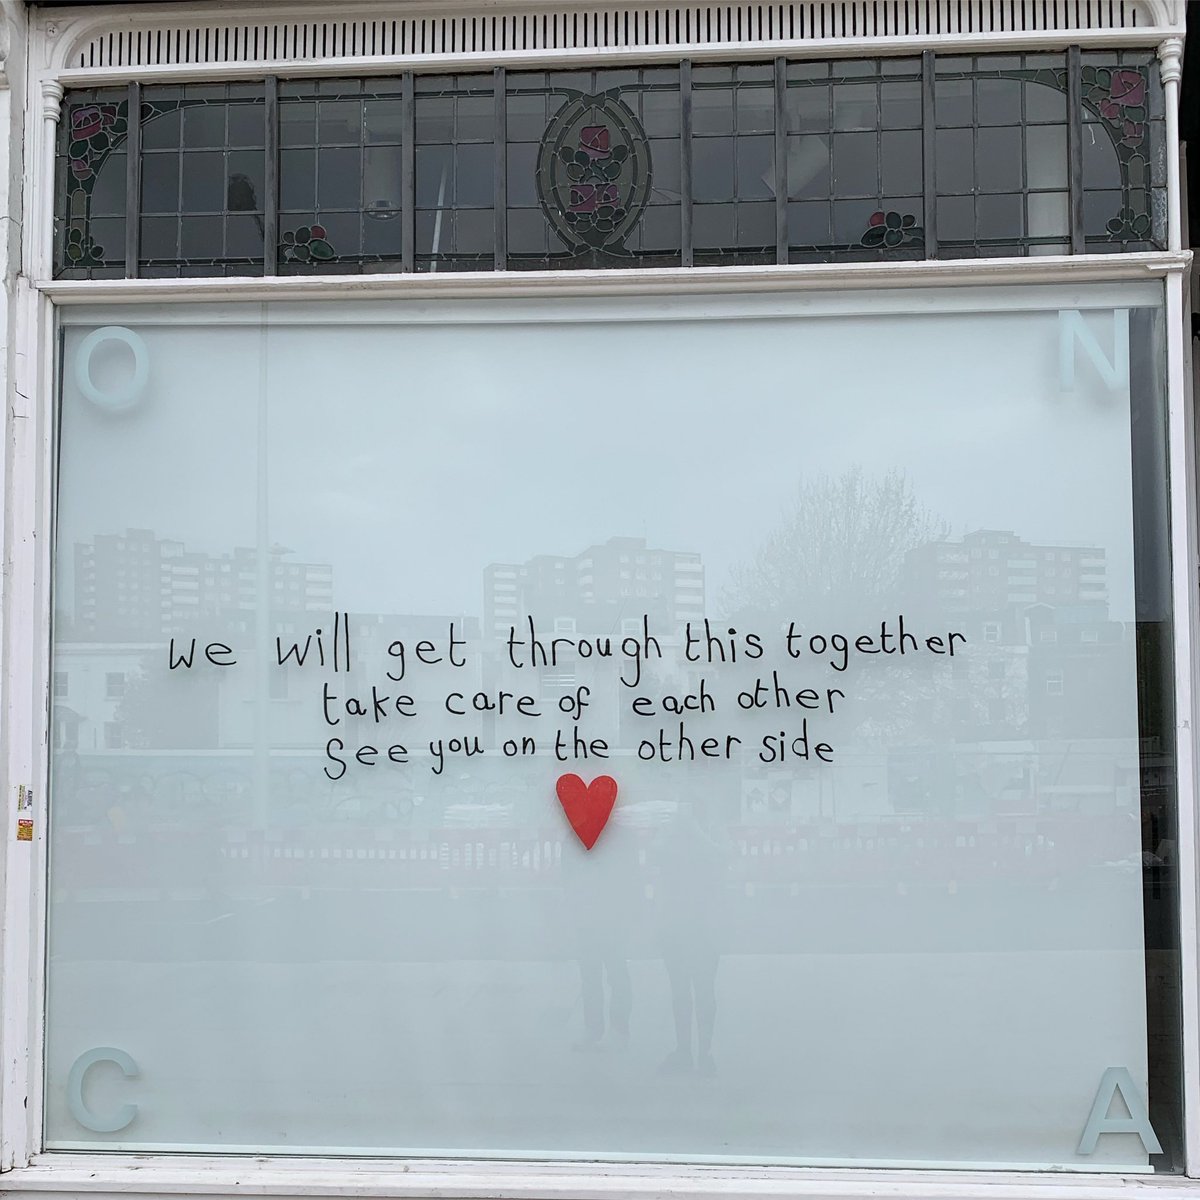 O N
we will get through this together
take care of each other
See you on the other side
C A